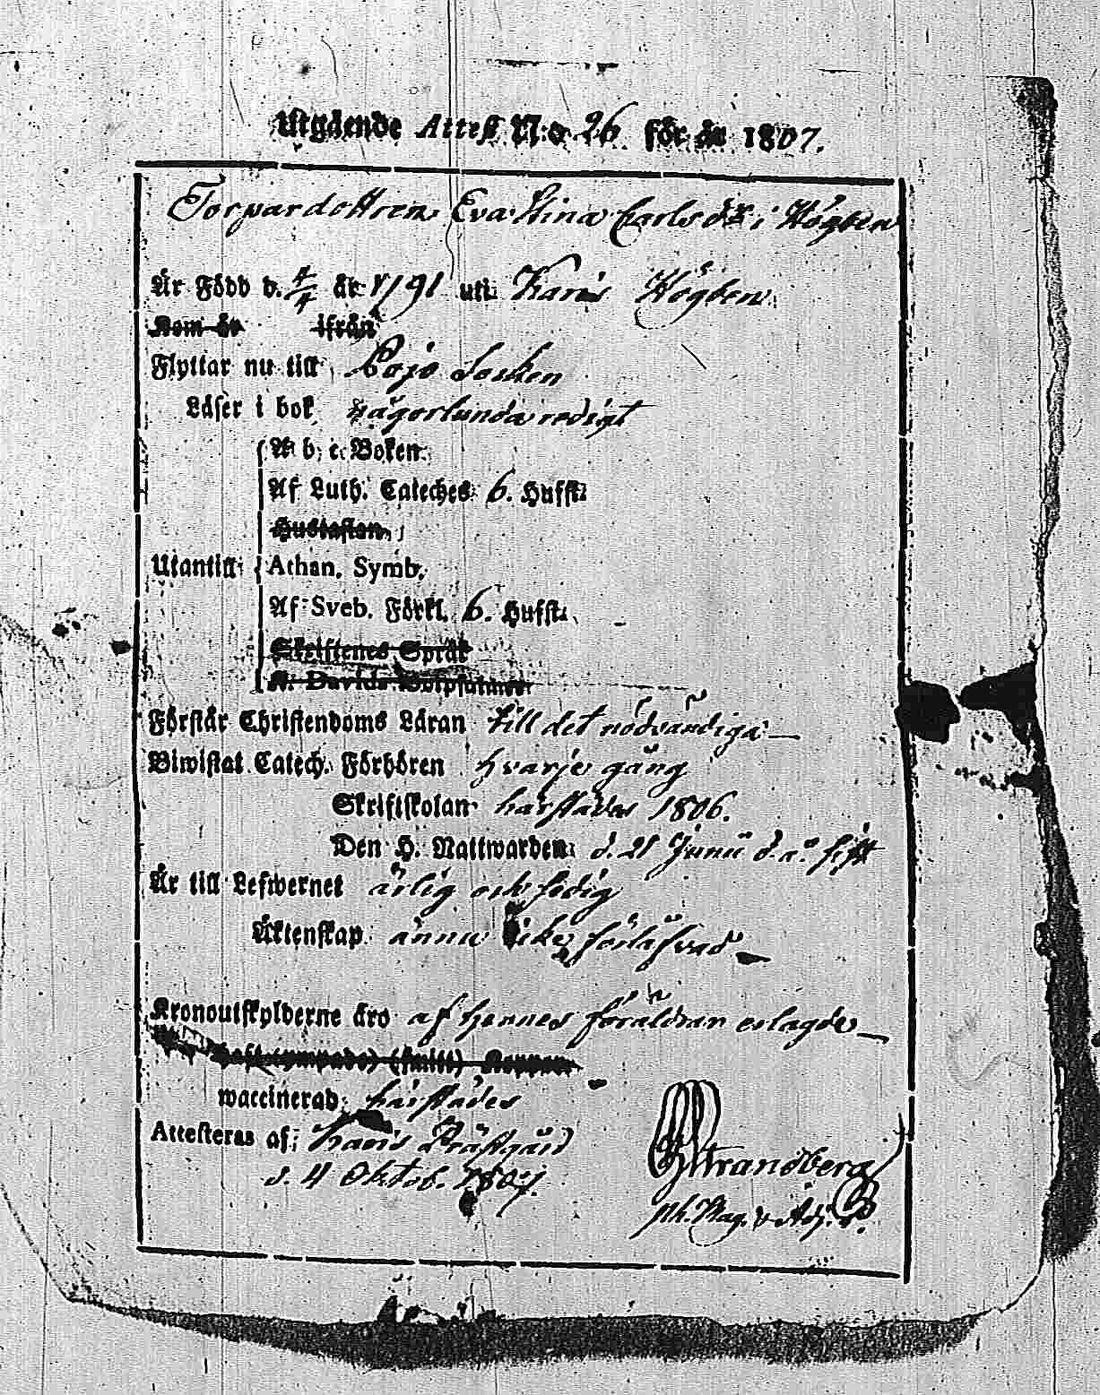 Utgående Attest N:o 26 för år 1807.
Torpardottren Eva Stina Carlsdr i Högben
Är Född d. 4/4 år 1791 uti Karis Högben
Kom år ifrån
Flyttar nu till Pojo Socken
Läser i bok någorlunda redigt
A b, c. Boken.
Af Luth. Cateches 6. Hufst.
Hustaflan,
Utantill Athan. Symb.
Af Sveb. Förkl. 6. Hufst.
Skriftenes Språk
K. Davids Botpsalmer
Förstår Christendoms Läran till det nödvändiga
Biwistat Catech. Förhören hvarje gång
Skriftskolan härstädes 1806.
Den H. Nattwarden d. 21 Junii d. å. sist
Är till Lefwernet ärlig och sedig
Äktenskap ännu icke förlåfvad
Kronoutskylderne äro af hennes föräldrar erlagde
Haft (ympade) Koppor
waccinerad härstädes
Attesteras af: Karis Prästgård
d. 4 Oktob. 1807.
Strandberg
ph. Mag. v. Adj. P.